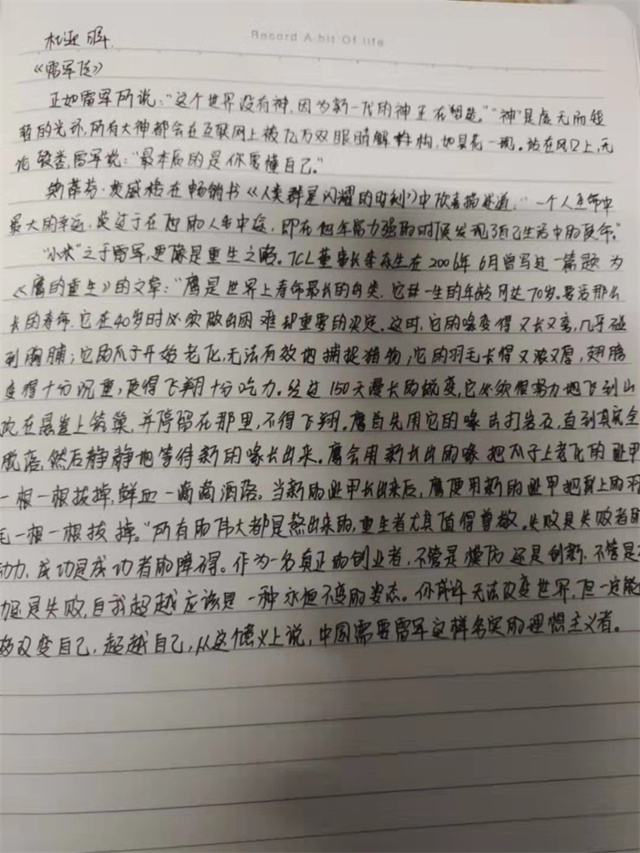 Record A bit Of life
杜亚
《雷军传》
正如雷军所说：“这个世界没有神，因为新一代的神正在塑造。”“神”是虚无而短
暂的光环，所有大神都会在互联网上被几万双眼睛解构，如昙花一现。站在风口上，无
论毁誉，雷军说：“最本质的是你要懂自己。”
斯蒂芬·茨威格在畅销书《人类群星闪耀的时刻》中故事描述道：“一个人生命中
最大的幸运，莫过于在他的人生中途，即在他年富力强的时候发现了自己生活中的使命。”
“小米”之于雷军，更像是重生之路。TCL董事长李东生在2006年6月曾写过一篇题为
《鹰的重生》的文章：“鹰是世界上寿命最长的鸟类，它一生的年龄可达70岁。要活那么
长的寿命，它在40岁时必须做出困难却重要的决定。这时，它的喙变得又长又弯，几乎碰
到胸脯；它的爪子开始老化，无法有效地捕捉猎物；它的羽毛长得又浓又厚，翅膀
变得十分沉重，使得飞翔十分吃力。经过150天漫长的蜕变，它必须很努力地飞到山
顶在悬崖上筑巢，并停留在那里，不得飞翔。鹰首先用它的喙击打岩石，直到其完全
脱落，然后静静地等待新的喙长出来。鹰会用新长出的喙把爪子上老化的趾甲
一根一根拔掉，鲜血一滴滴洒落。当新的趾甲长出来后，鹰便用新的趾甲把身上的羽
毛一根一根拔掉。”所有的伟大都是熬出来的，重生者尤其值得尊敬。失败是失败者的
动力，成功是成功者的障碍。作为一名真正的创业者，不管是模仿还是创新，不管是
还是失败，自我超越应该是一种永恒不变的姿态。你或许无法改变世界，但一定能
够改变自己，超越自己，从这个意义上说，中国需要雷军这样务实的理想主义者。